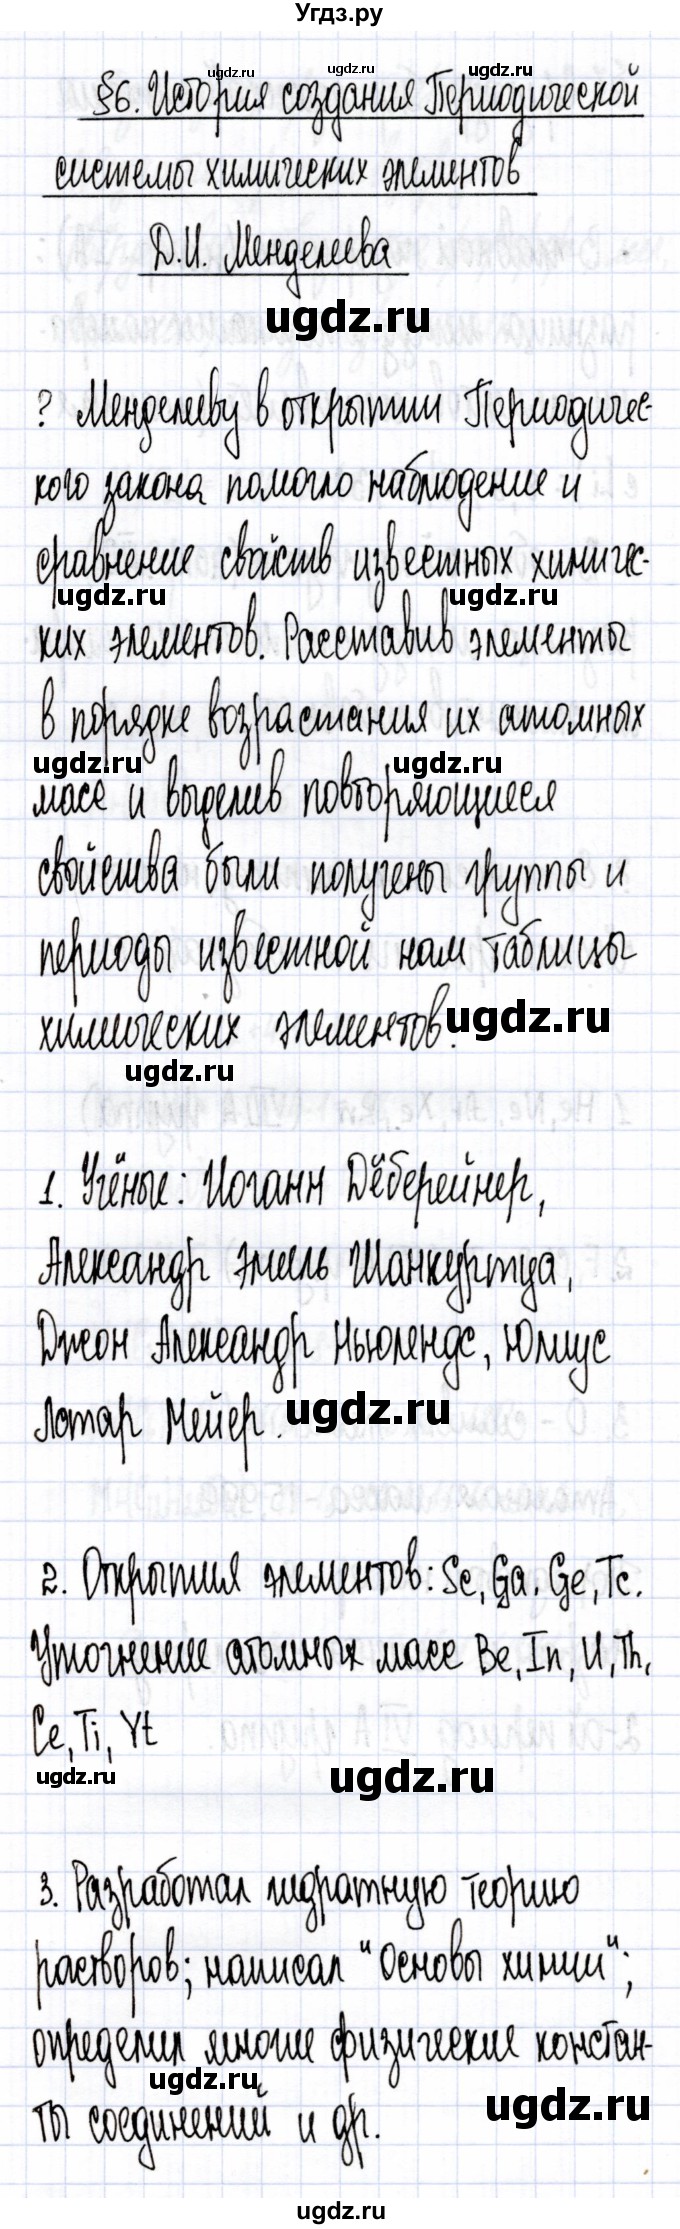 Угдз.ру
ugdz.ru
ugdz.ru
§6. История создания Периодической
системы химических элементов
Д.И. Менделеева
ugdz.ru
? Менделееву в открытии Периодичес-
кого закона помогло наблюдение и
сравнение свойств известных химичес-
ugdz.ru
ugdz.ru
ких элементов. Расставив элементы
в порядке возрастания их атомных
ugdz.ru
ugdz.ru
масс и выделив повторяющиеся
свойства были получены группы и
периоды известной нам таблицы
химических элементов.
ugdz.ru
ugdz.ru
1. Учёные: Иоганн Дёберейнер,
Александр Эмиль Шанкуртуа,
Джон Александр Ньюлендс, Юлиус
Лотар Мейер.
ugdz.ru
2. Открытия элементов: Sc, Ga. Ge, Tc.
Уточнение атомных масс Be, In, U, Th,
Ce, Ti, Yt
ugdz.ru
ugdz.ru
3. Разработал гидратную теорию
растворов; написал "Основы химии";
определил многие физические констан-
ugdz.ru
ugdz.ru
ты соединений и др.
ugdz.ru